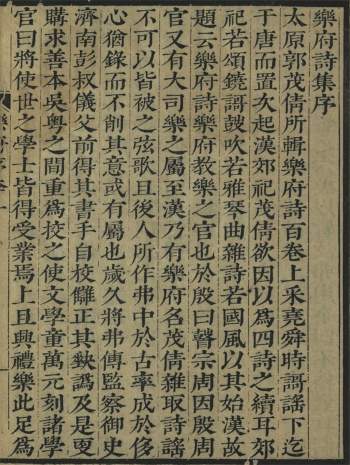 樂府詩集序
太原郭茂倩所輯樂府詩百卷上采堯舜時謌謡下迄
于唐而置次起漢郊祀茂倩欲因以為四詩之續耳郊
祀若頌鐃謌鼓吹若雅琴曲雜詩若國風以其始漢故
題云樂府詩樂府教樂之官也於殷曰瞽宗周因殷周
官又有大司樂之屬至漢乃有樂府名茂倩雜取詩謡
不可以皆被之弦歌且後人所作弗中於古率成於侈
心猶録而不削其意或有屬也歲久將弗傳監察御史
濟南彭叔儀父前得其書手自校讎正其缺譌及是更
購求善本吳粤之間重為校之使文學童萬元刻諸學
官曰將使世之學士皆得受業焉上且興禮樂此足為